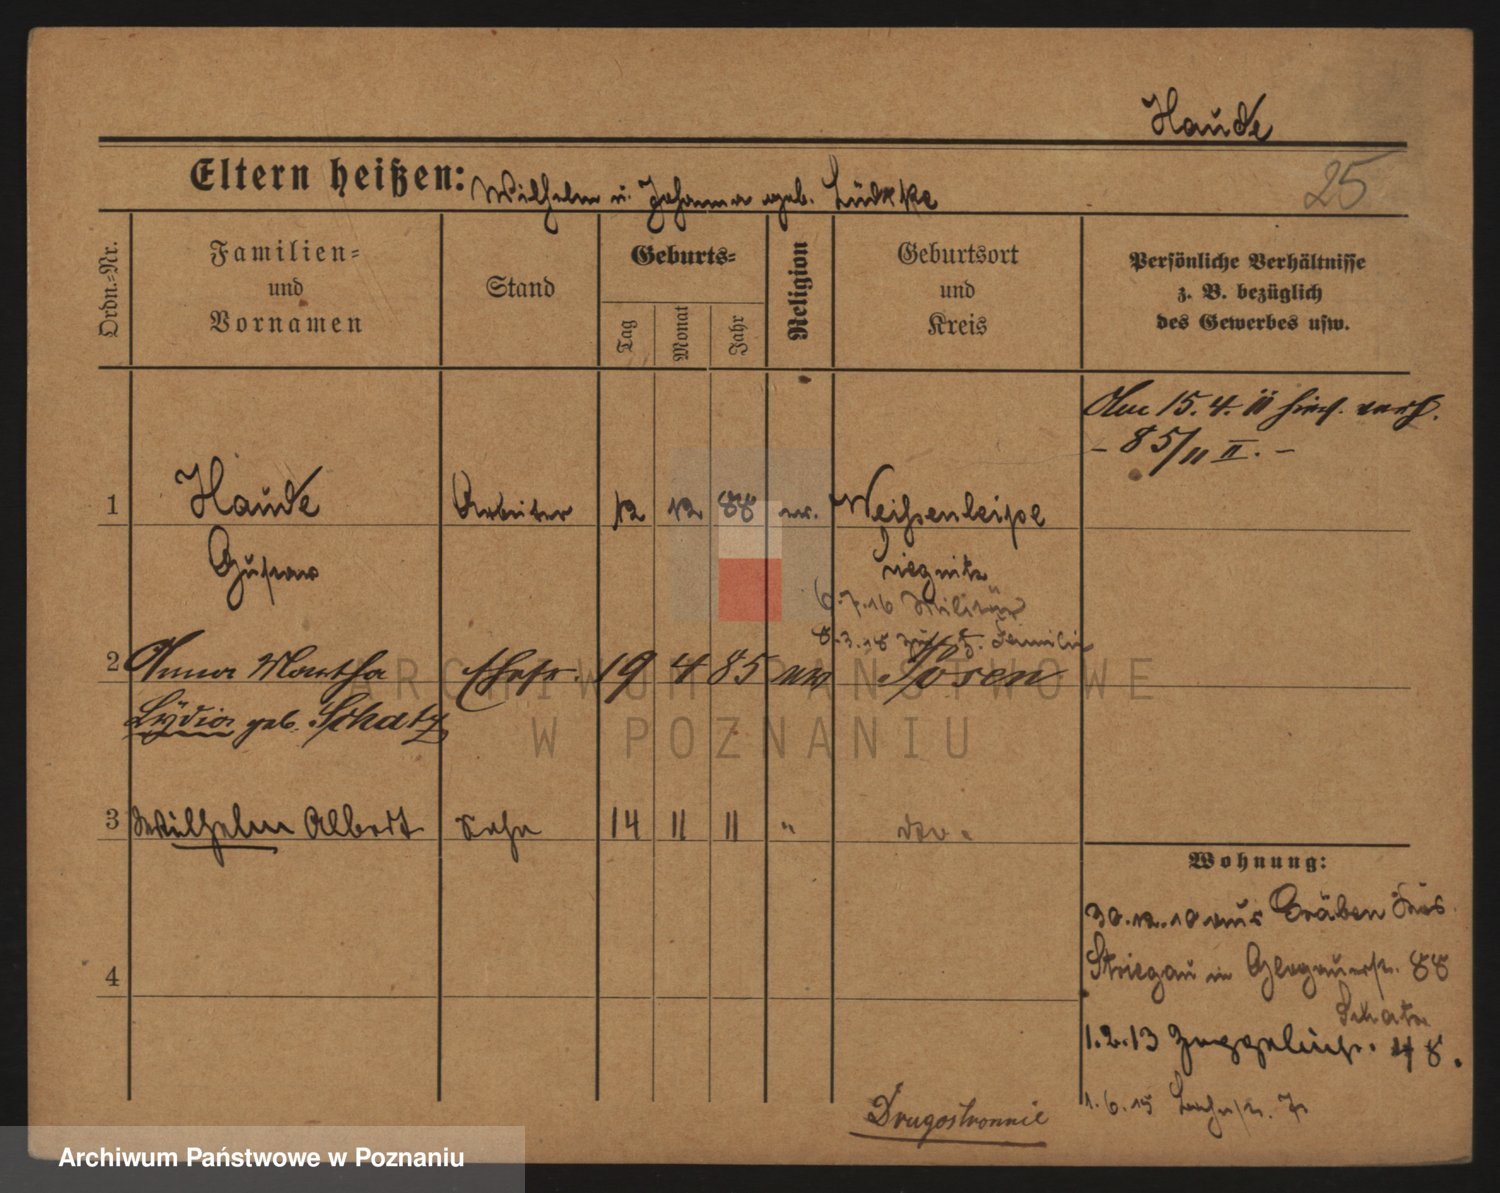 Haude
Eltern heißen: Wilhelm u. Johanna geb.
25
Ordn.-Nr.
Familien-
und
Vornamen
Stand
Geburts-
Tag
Monat
Jahr
Religion
Geburtsort
und
Kreis
Persönliche Verhältnisse
z. B. bezüglich
des Gewerbes usw.
Am 15. 4. 11 hier verh.
- 85/11 II. -
1 Haude Arbeiter 12 12 88 ev. Weihsenleipe
Gustav Liegnitz
6.7.16 Militär
8.3.18 Familie
2 Anna Martha Ehefr. 19 4 85 ev Posen
Lydia geb. Schatz
3 Wilhelm Albert Sohn 14 11 11 "
4
Wohnung:
30.12.10 aus Gräben Kreis
Striegau in Glogauerstr. 88
Schatz
1.2.13 48.
1.6.15
Drugostronnie
ARCHIWUM PAŃSTWOWE
W POZNANIU
Archiwum Państwowe w Poznaniu